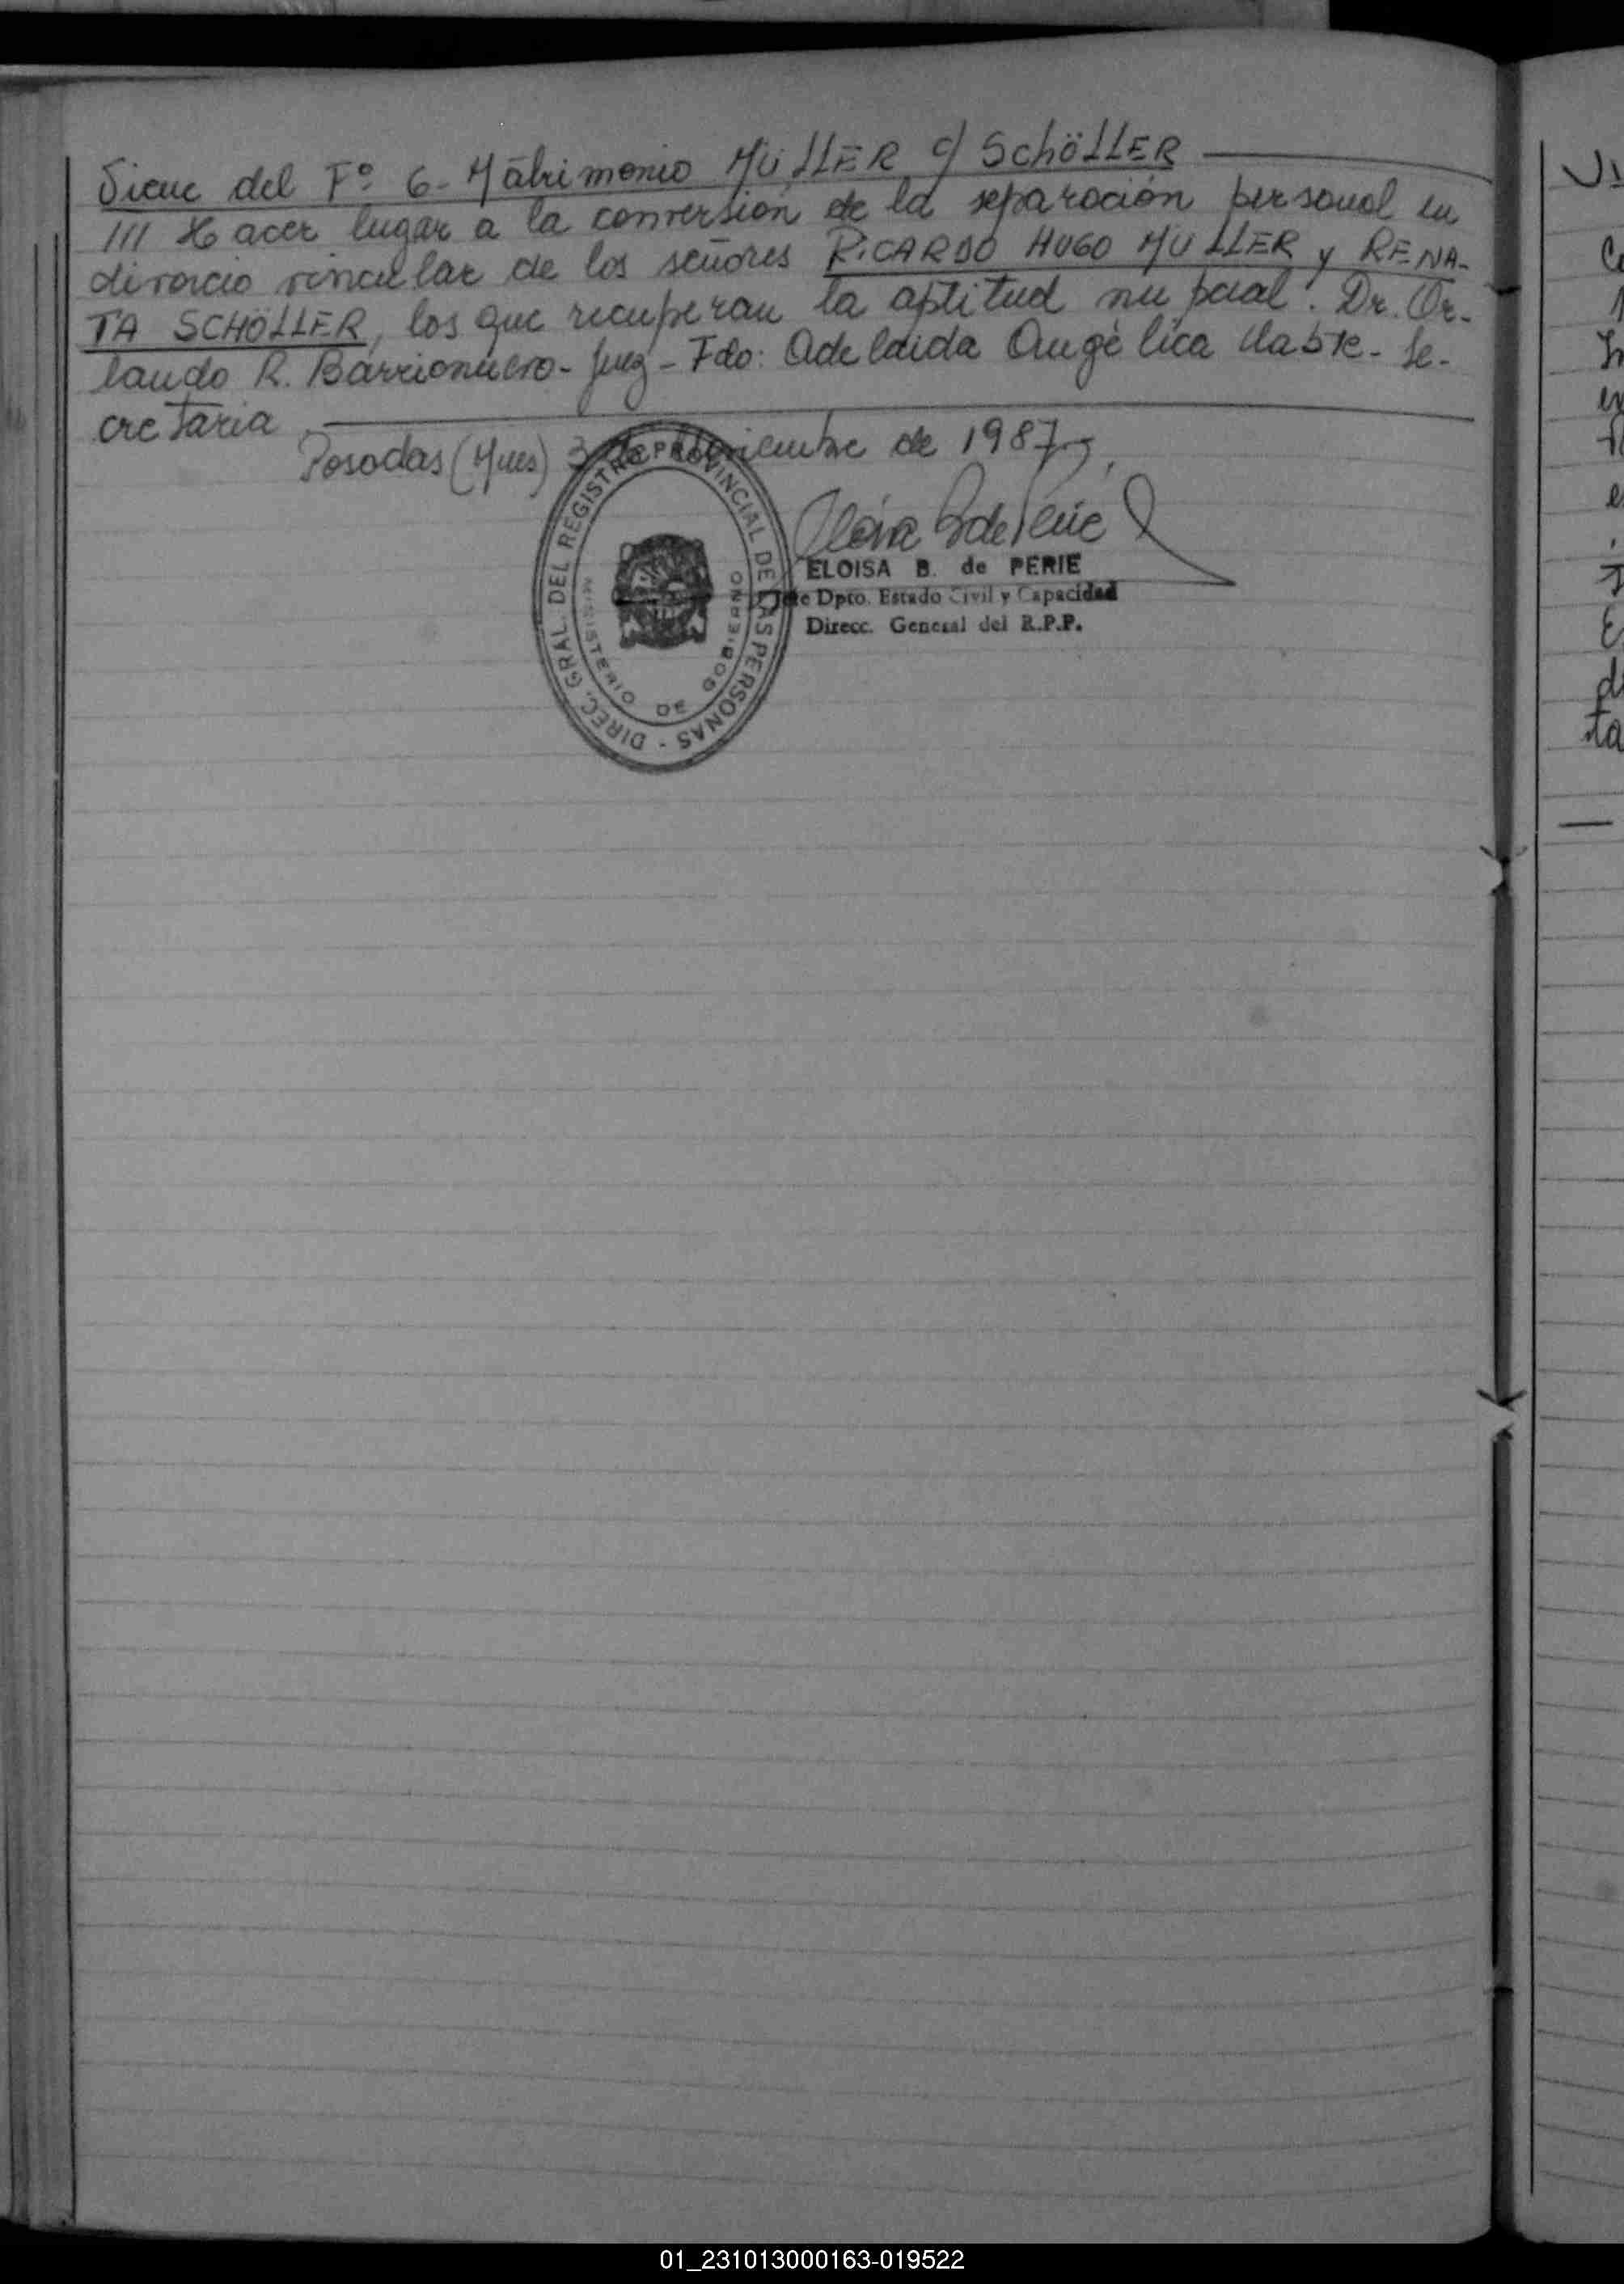 Viene del Fº 6- Matrimonio MÜLLER c/ SchöLLER
/// Hacer lugar a la conversión de la separación personal en
divorcio vincular de los señores RICARDO HUGO MÜLLER y RENA-
TA SCHÖLLER, los que recuperan la aptitud nupcial. Dr. Or-
lando R. Barrionuevo- Juez- Fdo: Adelaida Angélica - Se-
cretaria
Posadas (Mnes) 3 de Noviembre de 1987
DIREC. GRAL. DEL REGISTRO PROVINCIAL DE LAS PERSONAS -
MINISTERIO DE GOBIERNO
ELOISA B. de PERIE
Jefe Dpto. Estado Civil y Capacidad
Direcc. General del R.P.P.
01_231013000163-019522